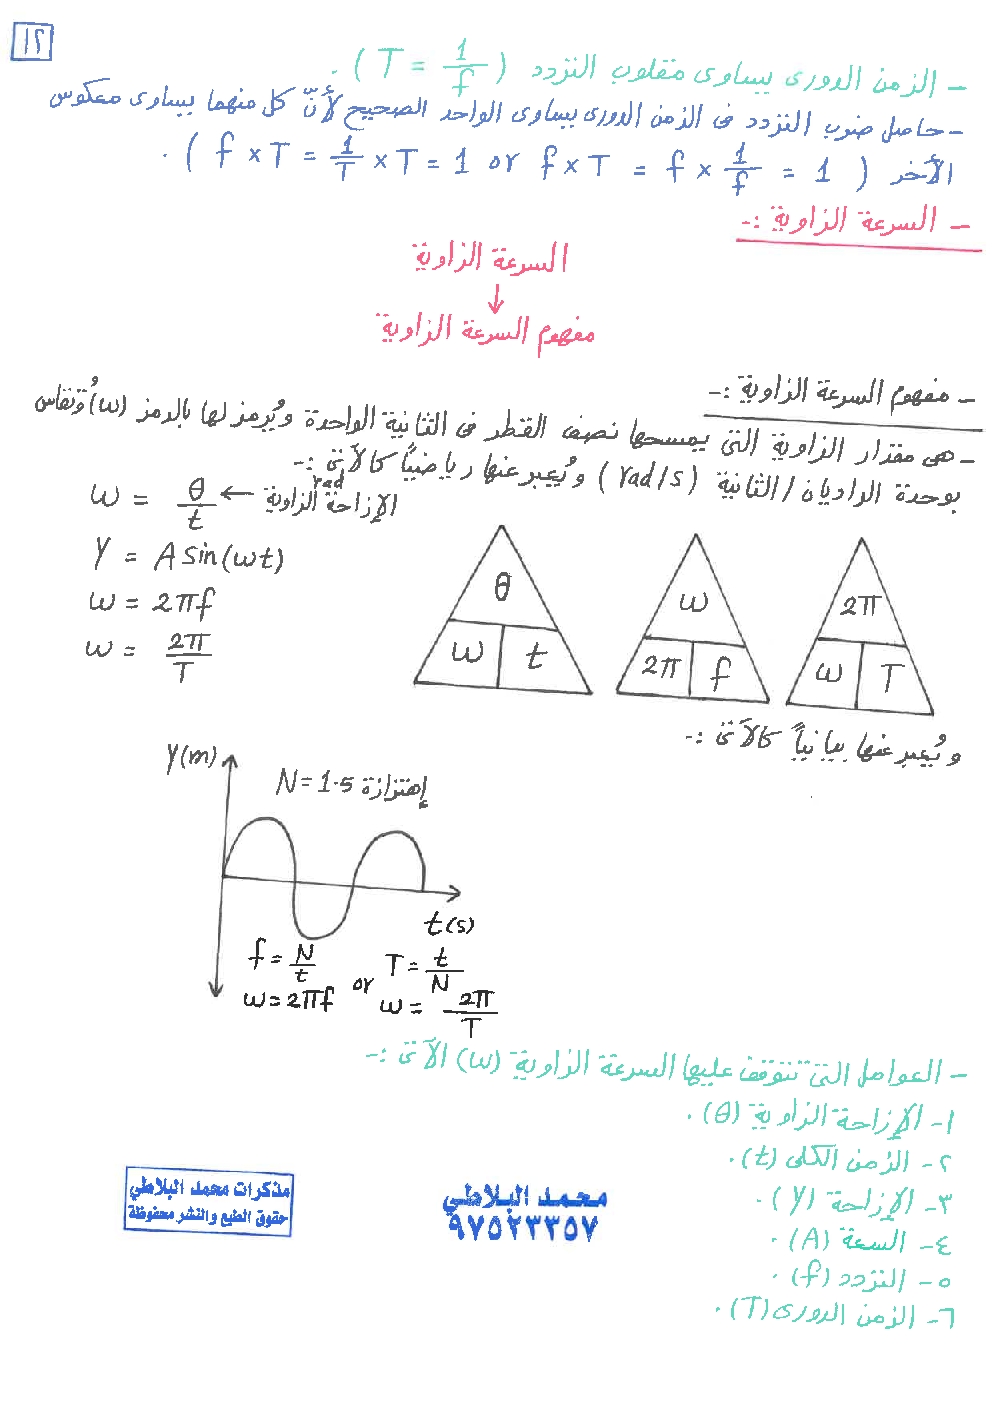 ١٢
- الزمن الدورى يساوى مقلوب التردد ( T = 1/f ) .
- حاصل ضرب التردد فى الزمن الدورى يساوى الواحد الصحيح لأنّ كل منهما يساوى معكوس
الأخر ( f × T = 1/T × T = 1 or f × T = f × 1/f = 1 ) .
- السرعة الزاوية :-
السرعة الزاوية
↓
مفهوم السرعة الزاوية
- مفهوم السرعة الزاوية :-
- هى مقدار الزاوية التى يمسحها نصف القطر فى الثانية الواحدة ويُرمز لها بالرمز (ω) وتُقاس
بوحدة الراديان / الثانية (rad/s) ويُعبر عنها رياضيًّا كالآتى :-
ω = θ/t ← الإزاحة الزاوية rad
Y = A sin(ωt)
ω = 2πf
ω = 2π/T
θ
ω t
ω
2π f
2π
ω T
ويُعبر عنها بيانياً كالآتى :-
Y(m)
N = 1.5 إهتزازة
t(s)
f = N/t or T = t/N
ω = 2πf ω = 2π/T
- العوامل التى تتوقف عليها السرعة الزاوية (ω) الآتى :-
١- الإزاحة الزاوية (θ) .
٢- الزمن الكلى (t) .
٣- الإزاحة (Y) .
٤- السعة (A) .
٥- التردد (f) .
٦- الزمن الدورى (T) .
محمد البلاطي
٩٧٥٢٣٣٥٧
مذكرات محمد البلاطي
حقوق الطبع والنشر محفوظة